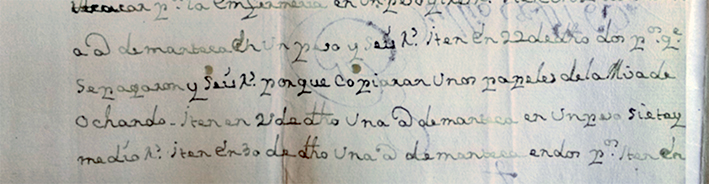 p.ª la enfermeria en un peso
a @ de manteca en Un peso y seis r.s iten en 22 de dho dos p.os q.e
se pagaron y seis r.s porque copiaran Unos papeles de la Misa de
Ochando - iten en 21 de dho Una @ de manteca en Un peso siete y
medio r.s iten en 30 de dho Una @ de manteca en dos p.os iten en